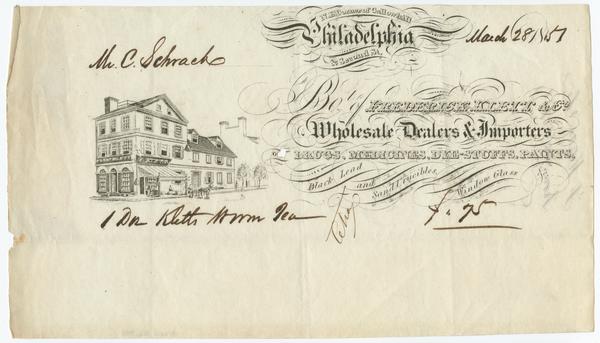 N.E. Corner of Callowhill
Philadelphia
& Second St.
March 28/1851
Mr. C. Schrack
Bot. of FREDERICK KLETT & Co.
Wholesale Dealers & Importers
OF DRUGS, MEDICINES, DYE-STUFFS, PAINTS,
Black Lead and Sand Crucibles, Window Glass
1 Doz Kletts Worm Tea $ . 75